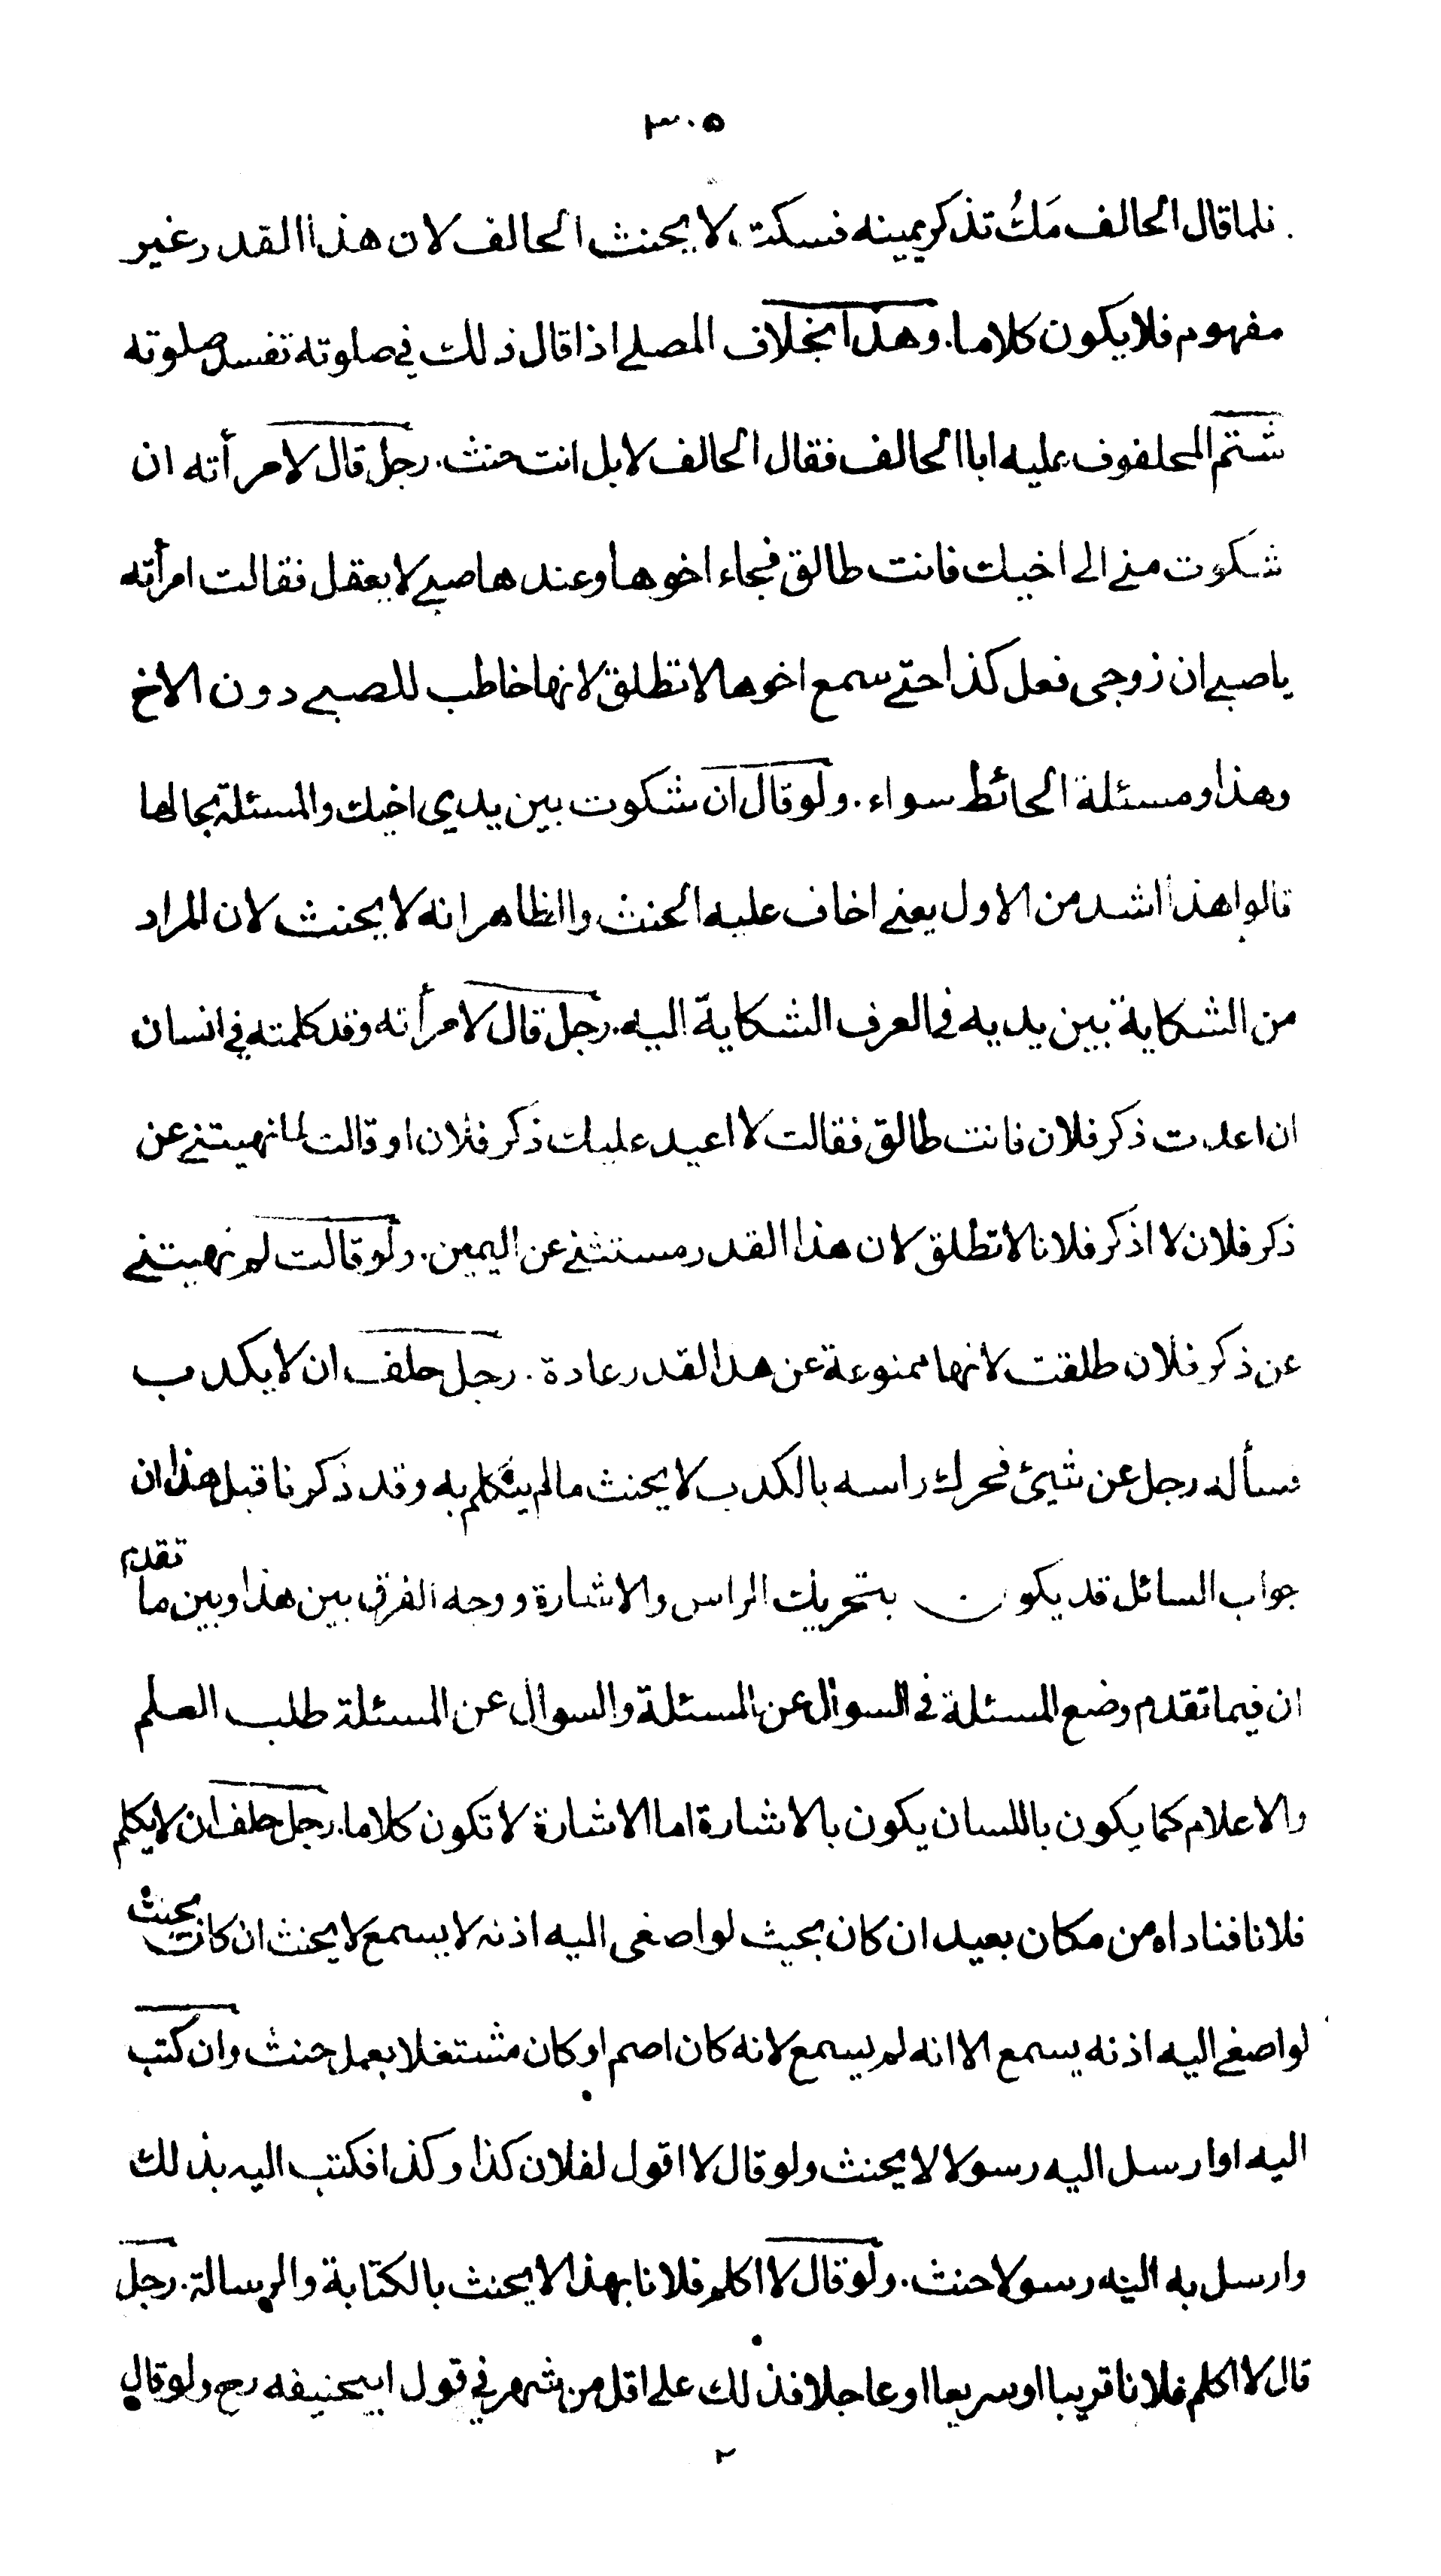 ٣٠٥
فلما قال الحالف مَكُ تذكر يمينه فسكت لا يحنث الحالف لان هذا القدر غير
مفهوم فلا يكون كلاما. وهذا بخلاف المصلے اذا قال ذلك في صلوته تفسد صلوته
شتم المحلفوف عليه ابا الحالف فقال الحالف لا بل انت حنث. رجل قال لامرأته ان
شكوت منے الى اخيك فانت طالق فجاء اخوها وعندها صبے لا يعقل فقالت امرأته
يا صبے ان زوجى فعل كذا حتے سمع اخوها لا تطلق لانها خاطب للصبے دون الاخ
وهذا ومسئلة الحائط سواء. ولو قال ان شكوت بين يدي اخيك والمسئلة بحالها
قالوا هذا اشد من الاول يعنے اخاف عليه الحنث والظاهر انه لا يحنث لان المراد
من الشكاية بين يديه في العرف الشكاية اليه. رجل قال لامرأته وقد كلمته في انسان
ان اعدت ذكر فلان فانت طالق فقالت لا اعيد عليك ذكر فلان او قالت لما نهيتنے عن
ذكر فلان لا اذكر فلانا لا تطلق لان هذا القدر مستثنے عن اليمين. ولو قالت لم نهيتنے
عن ذكر فلان طلقت لانها ممنوعة عن هذا القدر عادة. رجل حلف ان لا يكذب
فسأله رجل عن شيئ فحرك راسه بالكذب لا يحنث ما لم يتكلم به وقد ذكرنا قبل هذا ان
جواب السائل قد يكون بتحريك الراس والاشارة ووجه الفرق بين هذا وبين ما تقدم
ان فيما تقدم وضع المسئلة في السوال عن المسئلة والسوال عن المسئلة طلب العلم
والاعلام كما يكون باللسان يكون بالاشارة اما الاشارة لا تكون كلاما. رجل حلف ان لا يكلم
فلانا فناداه من مكان بعيد ان كان بحيث لو اصغى اليه اذنه لا يسمع لا يحنث ان كان بحيث
لو اصغے اليه اذنه يسمع الا انه لم يسمع لانه كان اصم او كان مشتغلا بعمل حنث وان كتب
اليه او ارسل اليه رسولا لا يحنث ولو قال لا اقول لفلان كذا وكذا فكتب اليه بذلك
وارسل به اليه رسولا حنث. ولو قال لا اكلم فلانا بهذا لا يحنث بالكتابة والرسالة. رجل
قال لا اكلم فلانا قريبا او سريعا او عاجلا فذلك على اقل من شهر في قول ابيحنيفه رح ولو قال
٢